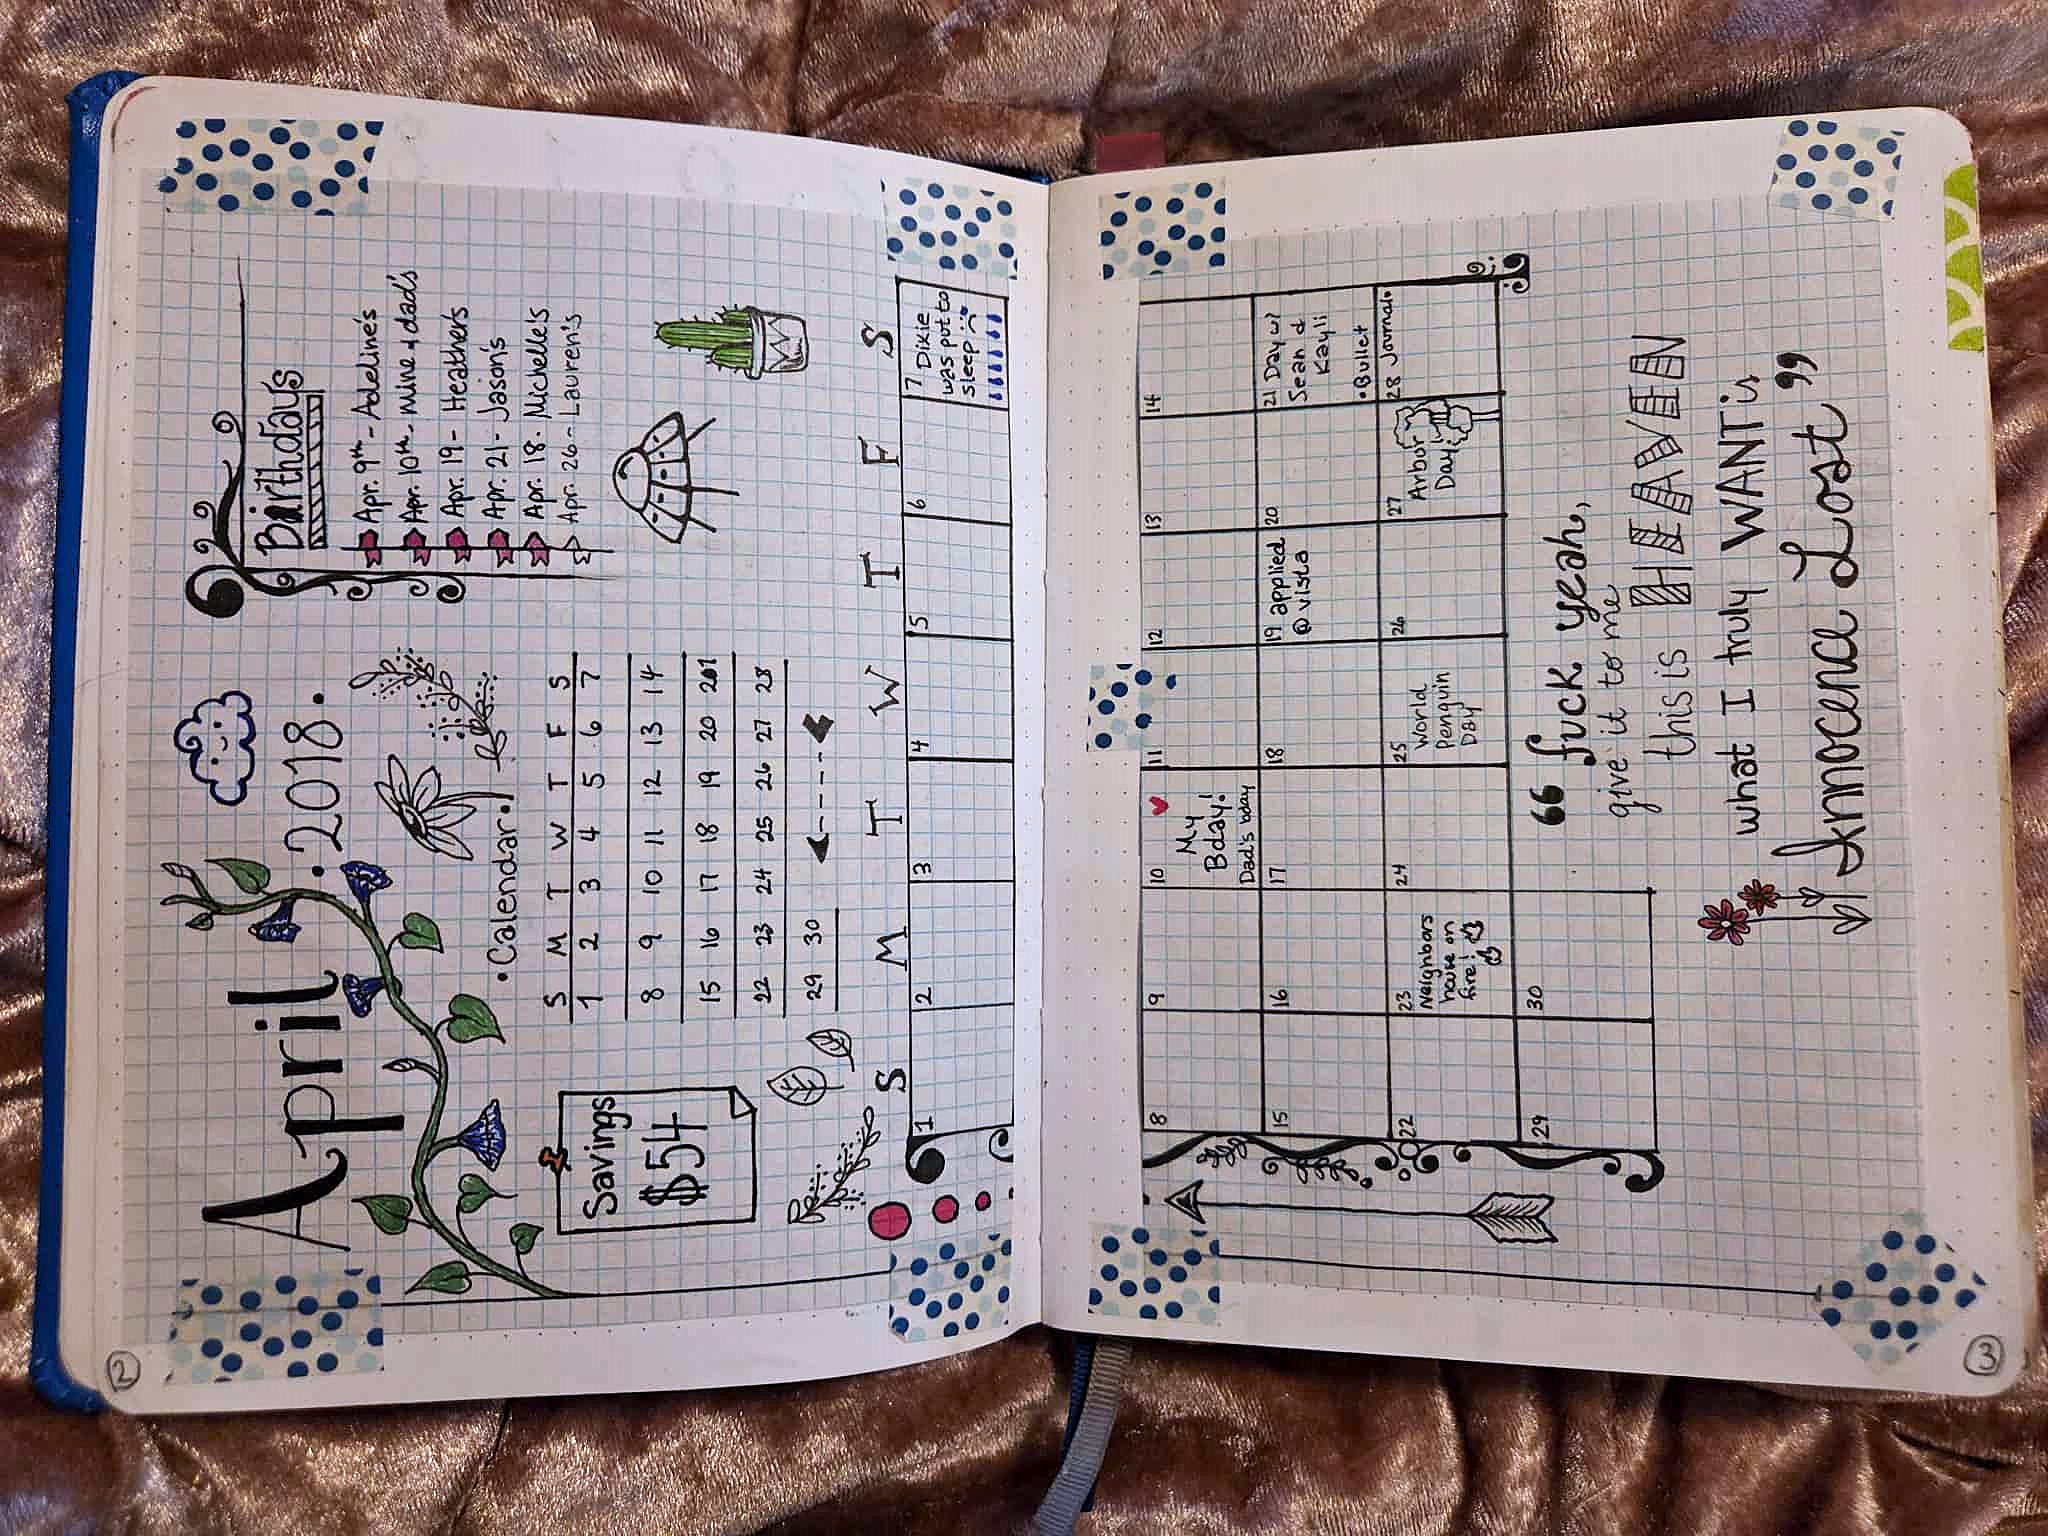 April
.2018.
Birthdays
Apr. 9th - Adeline's
Apr. 10th - mine & dad's
Apr. 19 - Heather's
Apr. 21 - Jason's
Apr. 18 - Michelle's
Apr. 26 - Lauren's
• Calendar •
S M T W T F S
1 2 3 4 5 6 7
8 9 10 11 12 13 14
15 16 17 18 19 20 21
22 23 24 25 26 27 28
29 30
Savings
$54
S M T W T F S
1 2 3 4 5 6 7 Dixie
was put to
sleep :(
2
8 9 10 11 12 13 14
My
Bday!
Dad's bday
15 16 17 18 19 applied
@ vista
20 21 Day w/
Sean &
Kayli
• Bullet
22 23 24 25 26 27 28 Journal •
Neighbors
house on
fire!
World
Penguin
Day
Arbor
Day!
29 30
“ fuck yeah,
give it to me
this is HEAVEN
what I truly WANT is
Innocence Lost ”
3